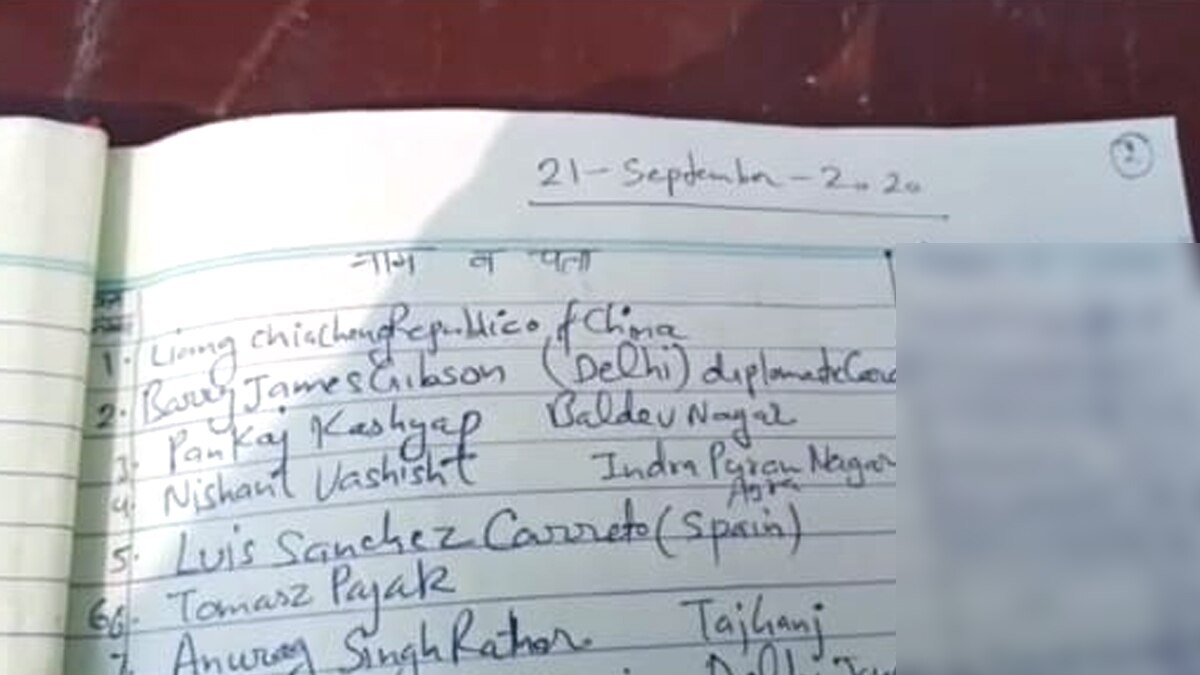 2
21-September-2020
नाम व पता
1. Liang Chiacheng Republico of China
2. Barry James Gibson (Delhi) diplomate Card
3. Pankaj Kashyap Baldev Nagar
4. Nishant Vashisht Indra Puram Nagar
Agra
5. Luis Sanchez Carreto (Spain)
66. Tomasz Pajak
7. Anurag Singh Rathor. Tajganj
Delhi